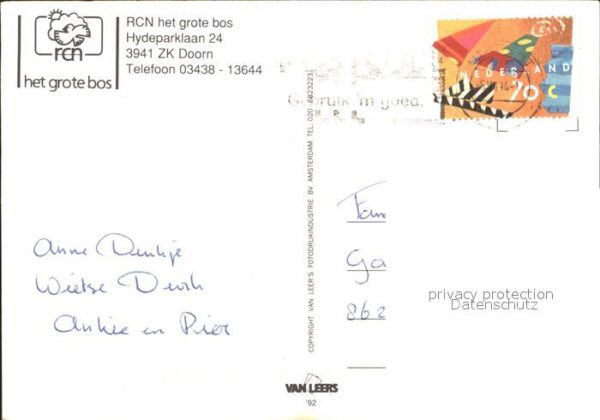 RCN het grote bos
Hydeparklaan 24
3941 ZK Doorn
Telefoon 03438 - 13644
rcn
het grote bos
Gebruik 'm goed.
NEDERLAND
70 c
COPYRIGHT VAN LEER'S FOTODRUKINDUSTRIE BV AMSTERDAM TEL. 020
Anne
Wietse
Ankie en Pier
Fam
Ga
862
privacy protection
Datenschutz
VAN LEERS
'92